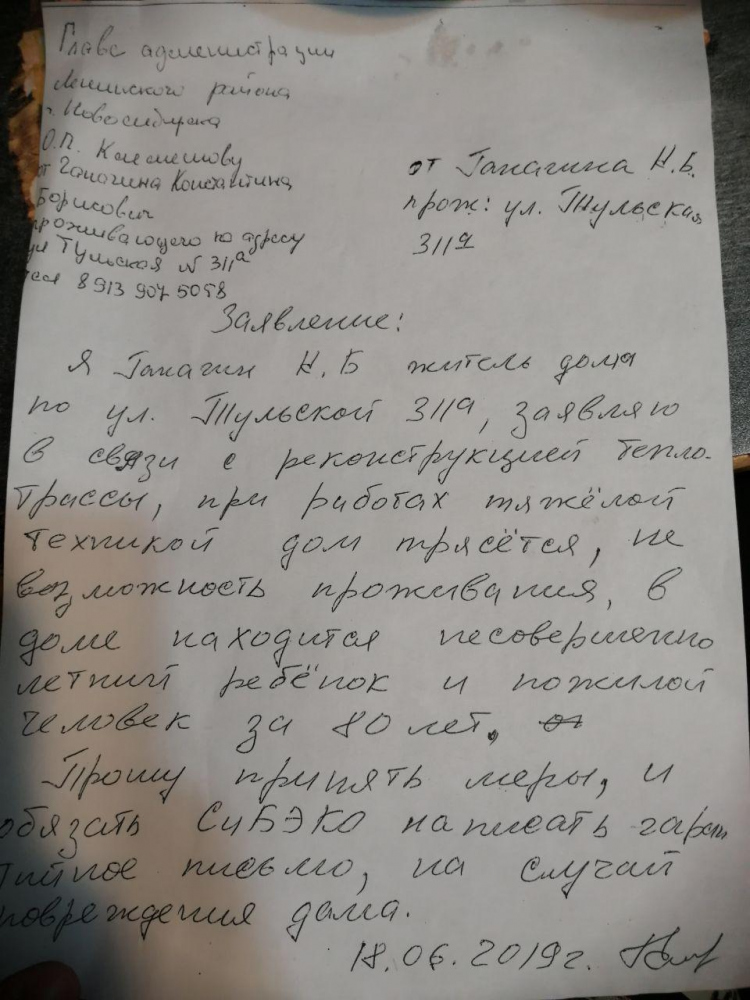 Главе администрации
Ленинского района
г. Новосибирска
О.П. Клемешову
от Гапагина Константина
Борисович
проживающего по адресу
ул Тульская № 311а
тел 8 913 907 5058
от Гапагина К.Б.
прож: ул. Тульская
311а
Заявление:
Я Гапагин К.Б житель дома
по ул. Тульской 311а, заявляю
в связи с реконструкцией тепло-
трассы, при работах тяжёлой
техникой дом трясётся, не
возможность проживания, в
доме находится несовершенно
летний ребёнок и пожилой
человек за 80 лет.
Прошу принять меры, и
обязать СиБЭКО написать гаран
тийное письмо, на случай
повреждения дома.
18.06.2019г.